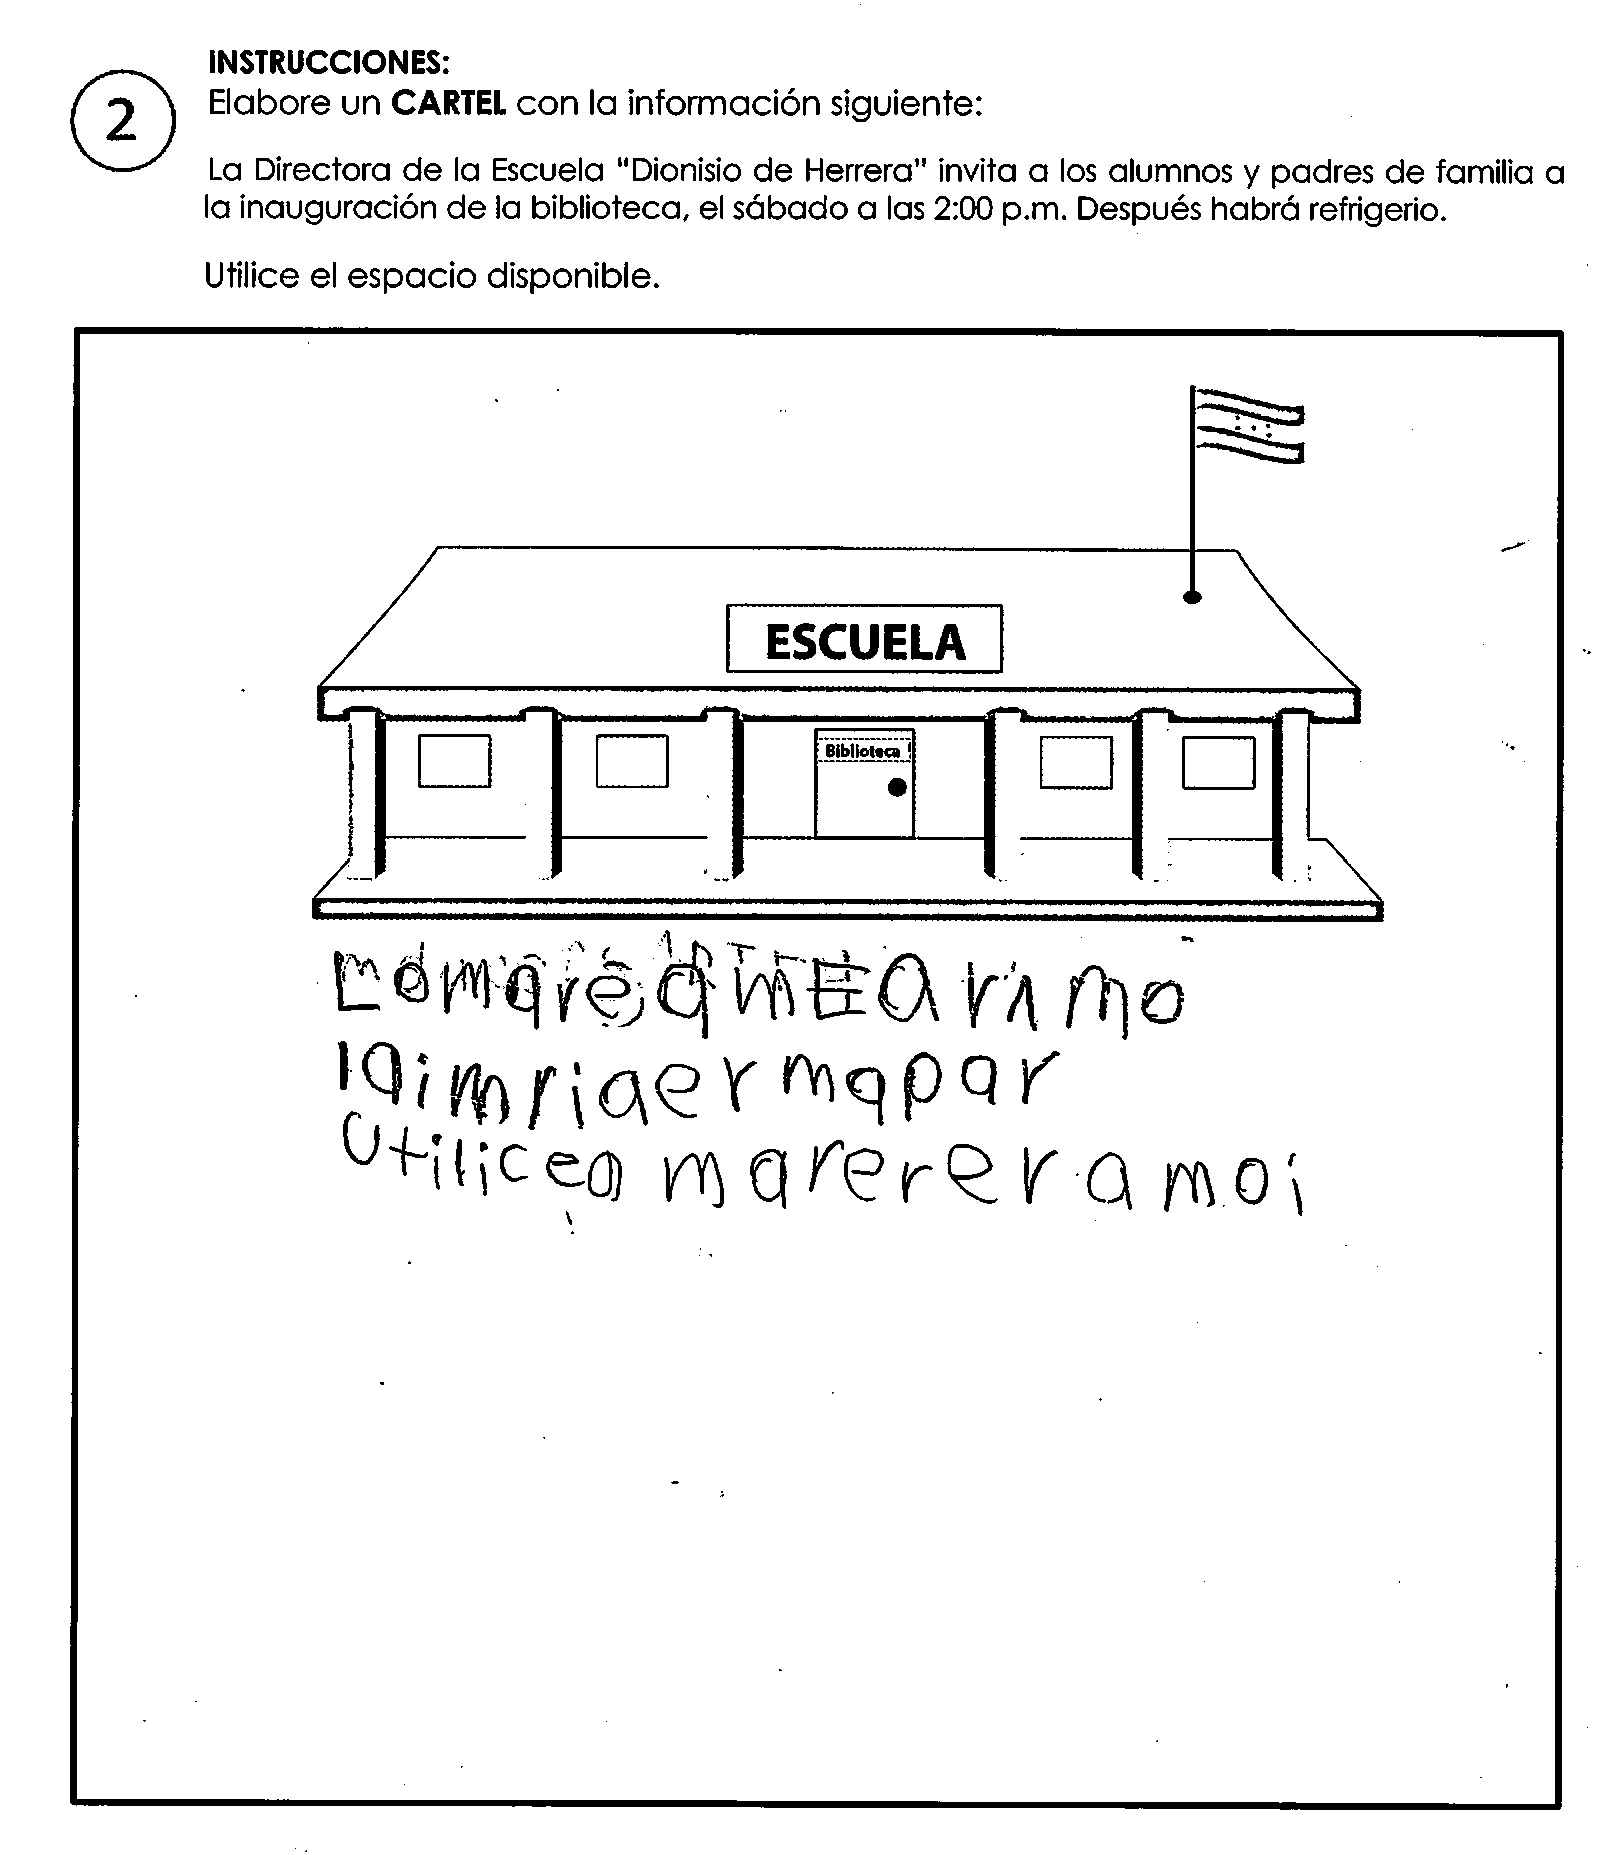 INSTRUCCIONES:
2
Elabore un CARTEL con la información siguiente:
La Directora de la Escuela "Dionisio de Herrera" invita a los alumnos y padres de familia a
la inauguración de la biblioteca, el sábado a las 2:00 p.m. Después habrá refrigerio.
Utilice el espacio disponible.
ESCUELA
Biblioteca
rimo
laimriaer mapar
Utilicea marereramoi